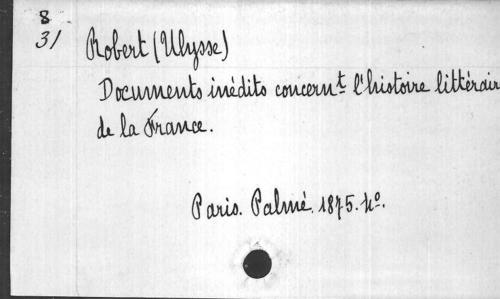 8
31
Robert (Ulysse)
Documents inédits concernt l'histoire littérair
de la France.
Paris. Palmé. 1875. 4o.